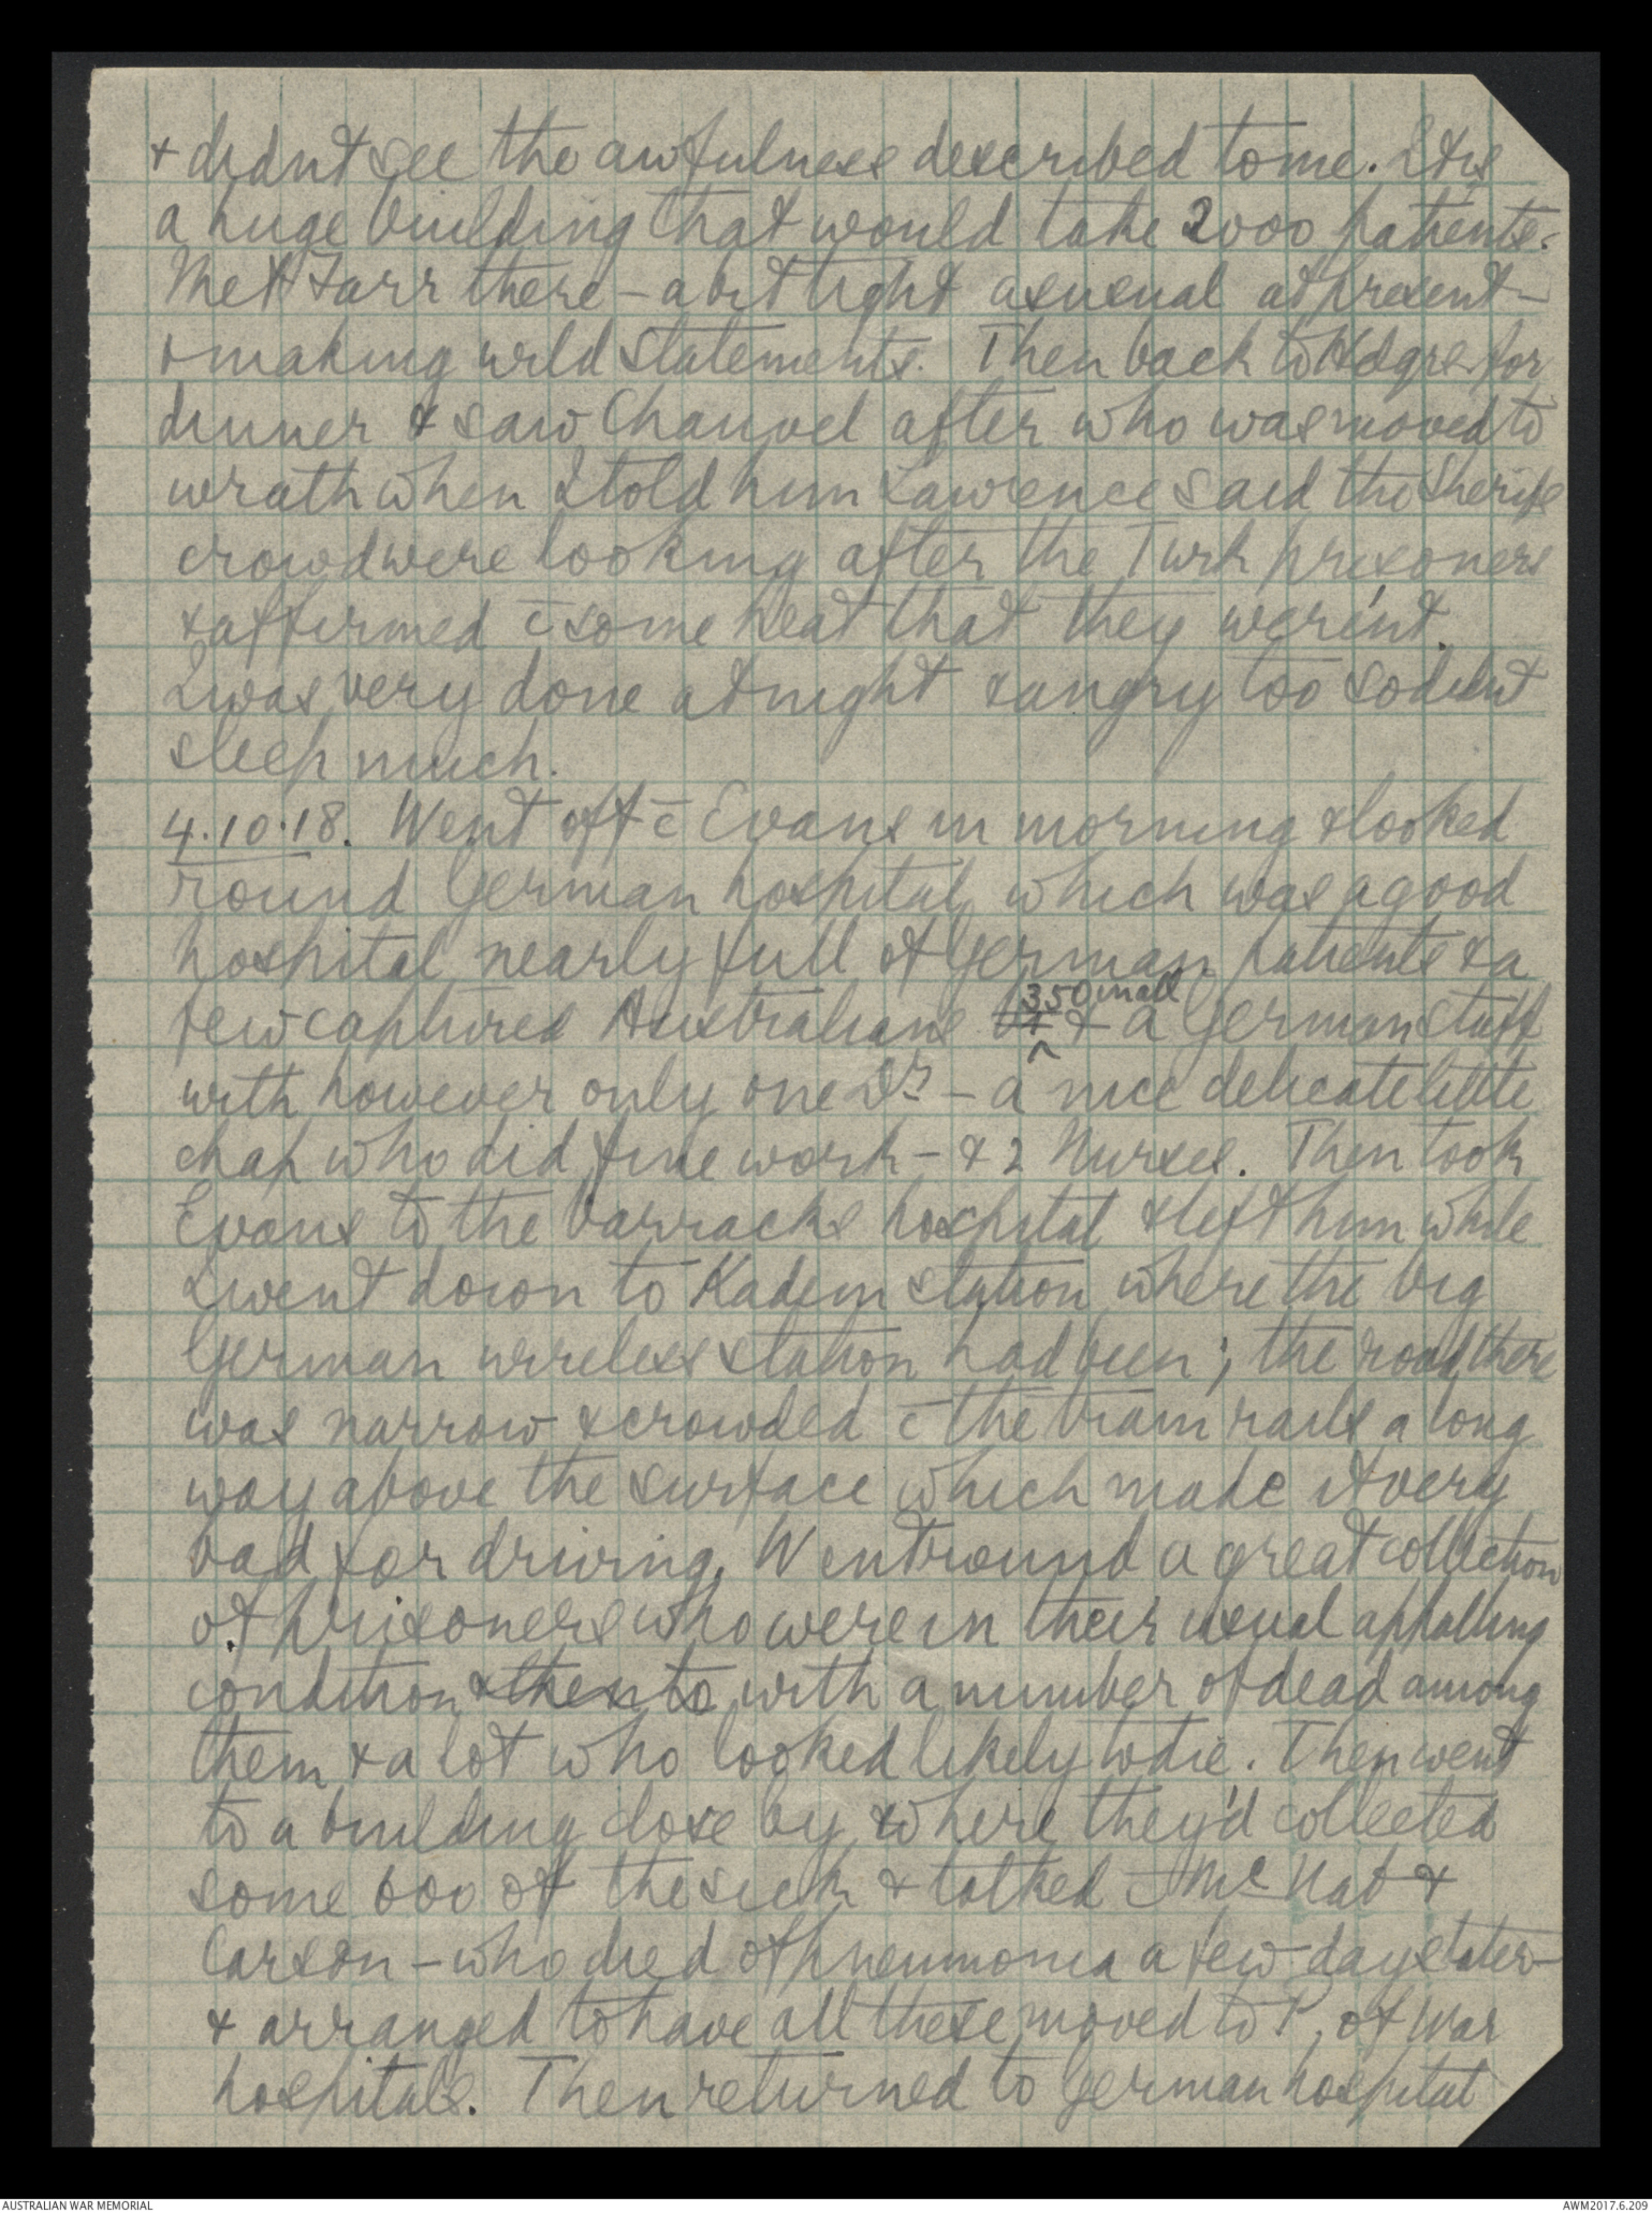 & didn't see the awfulness described to me. It is
a huge building that would take 2000 patients.
Met Farr there – a bit tight as usual at present –
& making wild statements. Then back to Hdqrs for
dinner & saw Chauvel after who was moved to
wrath when I told him Lawrence said the Sherifs
crowd were looking after the Turk prisoners
& affirmed c̄ some heat that they weren't.
I was very done at night & angry too so didnt
sleep much.
4.10.18. Went off c̄ Evans in morning & looked
round German hospital, which was a good
hospital nearly full of German patients & a
few captured Australians 350 in all & a German staff
with however only one Dr. – a nice delicate little
chap who did fine work – & 2 Nurses. Then took
Evans to the barracks hospital & left him while
I went down to Kadem station where the big
German wireless station had been; the road there
was narrow & crowded c̄ the tram rails a long
way above the surface which made it very
bad for driving. Went round a great collection
of prisoners who were in their usual appalling
condition & then to with a number of dead among
them & a lot who looked likely to die. Then went
to a building close by, where they'd collected
some 600 of the sick & talked c̄ McNab &
Carson – who died of pneumonia a few days later –
& arranged to have all these moved to P. of War
hospitals. Then returned to German hospital
AUSTRALIAN WAR MEMORIAL
AWM2017.6.209